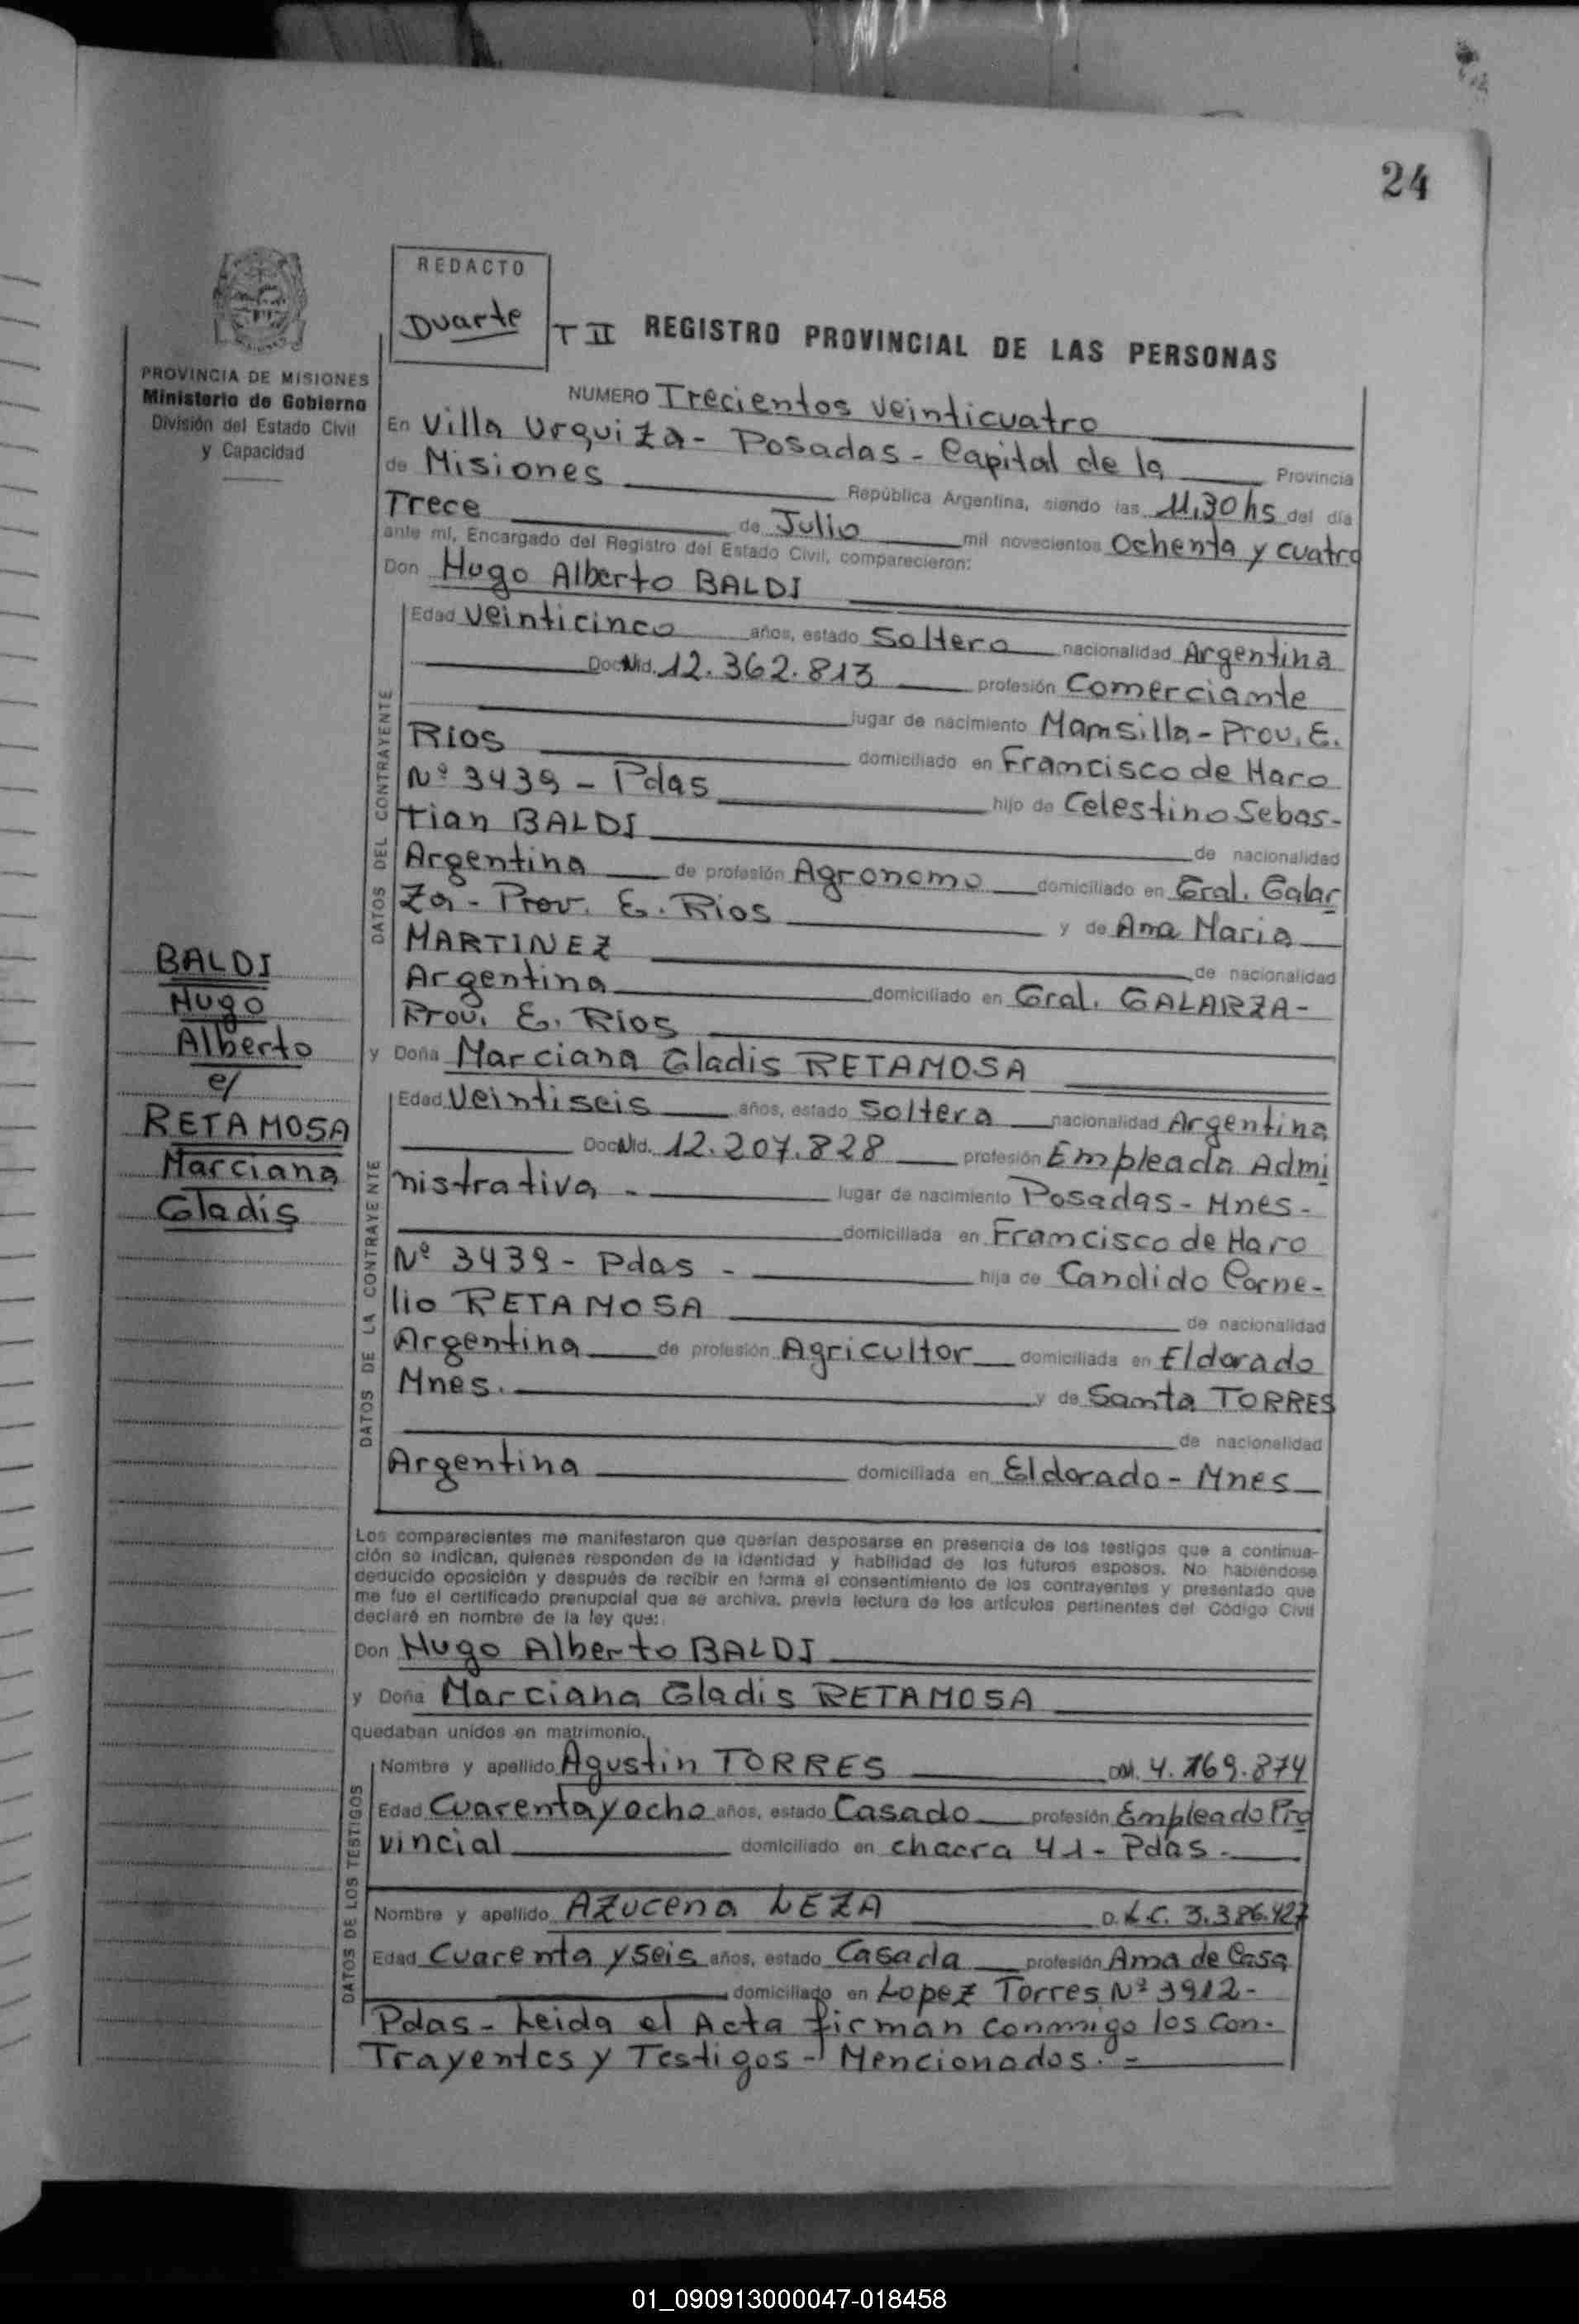 24
REDACTO
Duarte
T II REGISTRO PROVINCIAL DE LAS PERSONAS
PROVINCIA DE MISIONES
Ministerio de Gobierno
División del Estado Civil
y Capacidad
NUMERO Trecientos veinticuatro
En Villa Urquiza - Posadas - Capital de la Provincia
de Misiones República Argentina, siendo las 11,30 hs del día
Trece de Julio mil novecientos Ochenta y cuatro
ante mí, Encargado del Registro del Estado Civil, comparecieron:
Don Hugo Alberto BALDI
DATOS DEL CONTRAYENTE
Edad veinticinco años, estado Soltero nacionalidad Argentina
Doc. Nid. 12.362.813 profesión Comerciante
lugar de nacimiento Mansilla - Prov. E.
Rios domiciliado en Francisco de Haro
Nº 3439 - Pdas hijo de Celestino Sebas-
tian BALDI de nacionalidad
Argentina de profesión Agronomo domiciliado en Gral. Galar
za - Prov. E. Rios y de Ana Maria
MARTINEZ de nacionalidad
Argentina domiciliado en Gral. GALARZA -
Prov. E. Rios
y Doña Marciana Gladis RETAMOSA
BALDI
Hugo
Alberto
c/
RETAMOSA
Marciana
Gladis
DATOS DE LA CONTRAYENTE
Edad Veintiseis años, estado Soltera nacionalidad Argentina
Doc. Nid. 12.207.828 profesión Empleada Admi
nistrativa - lugar de nacimiento Posadas - Mnes -
domiciliada en Francisco de Haro
Nº 3439 - Pdas - hija de Candido Corne-
lio RETAMOSA de nacionalidad
Argentina de profesión Agricultor domiciliada en Eldorado
Mnes. y de Santa TORRES
de nacionalidad
Argentina domiciliada en Eldorado - Mnes
Los comparecientes me manifestaron que querían desposarse en presencia de los testigos que a continua-
ción se indican, quienes responden de la identidad y habilidad de los futuros esposos. No habiéndose
deducido oposición y después de recibir en forma el consentimiento de los contrayentes y presentado que
me fue el certificado prenupcial que se archiva, previa lectura de los artículos pertinentes del Código Civil
declaré en nombre de la ley que:
Don Hugo Alberto BALDI
y Doña Marciana Gladis RETAMOSA
quedaban unidos en matrimonio.
DATOS DE LOS TESTIGOS
Nombre y apellido Agustin TORRES 4.169.874
Edad Cuarenta y ocho años, estado Casado profesión Empleado Pro
vincial domiciliado en chacra 41 - Pdas -
Nombre y apellido Azucena LEZA D. L.C. 3.386.427
Edad Cuarenta y seis años, estado Casada profesión Ama de Casa
domiciliado en Lopez Torres Nº 3912 -
Pdas - Leida el Acta firman conmigo los Con-
Trayentes y Testigos - Mencionados. -
01_090913000047-018458